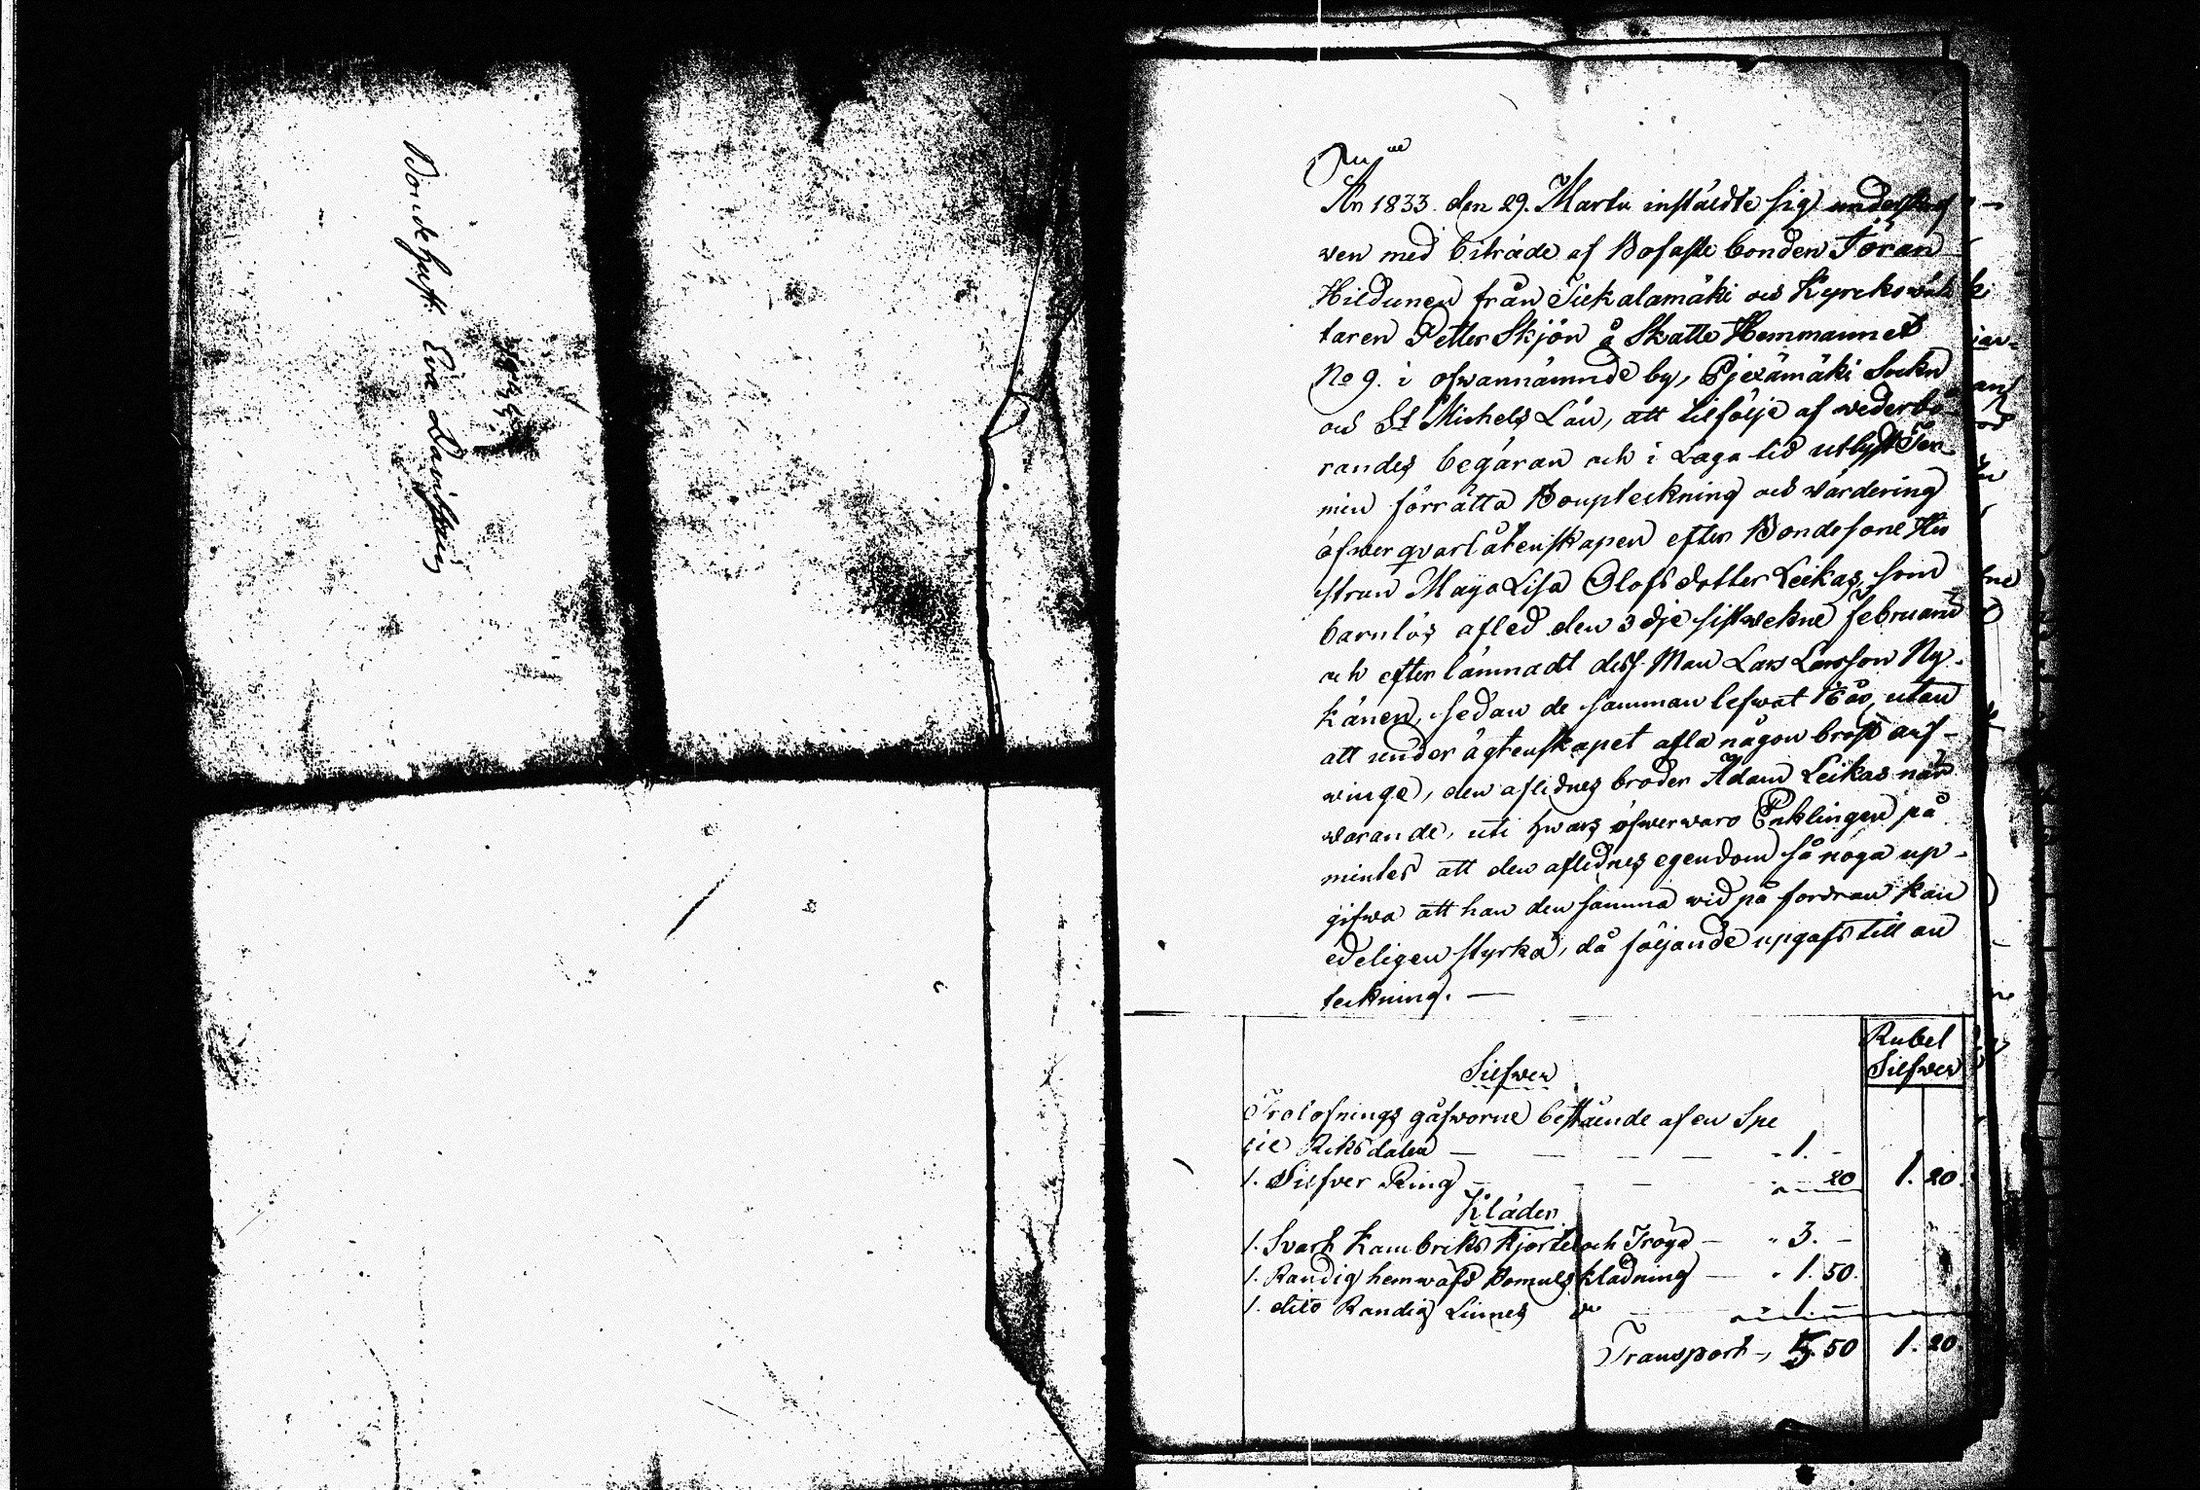 Bondehust: Eva Danielsdr
År 1833. den 29. Martii instäldte sig
ven med biträde af Bofaste bonden Göran
Hildunen från Tiekalamäki och Kyrckowäk
taren Petter Skjön å Skatte Hemmannet
No 9. i ofwannämnde by, Pjexämäki Sockn
och St Michels Län, att tilfölje af wederbö
randes begäran och i Laga tid utlyst Ter-
min förrätta Boupteckning och Wärdering
öfwer qvarlåtenskapen efter Bondesone Hu
strun Maja Lisa Olofsdotter Leikas, som
barnlös afled den 3dje sistwekne februarii
och efterlämnadt dess Man Lars Larsson Ny-
känen, sedan de samman lefwat 16 år, utan
att under ägtenskapet afla någon bröst arf-
winge, den aflidnes broder Adam Leikas när
warande, uti hwars öfwerwaro Enklingen på
mintes att den aflidnes egendom så noga up-
gifwa att han den samma wid på fordran kan
edeligen styrka, då följande upgafs till an
teckning. —
Rubel
Silfwer
Silfwer
Trolofnings gåfworne bestående af en Spe
cie Riksdaler — — — — " 1. -
1. Silfver Ring — — — " — 20 1. 20.
Kläder
1. Svart Kambriks Kjortel och Tröja — " 3. —
1. Randig hemwäfd Bomuls klädning — " 1. 50.
1. dito Randig Linnes do — " 1. —
Transport — 5. 50 1. 20.